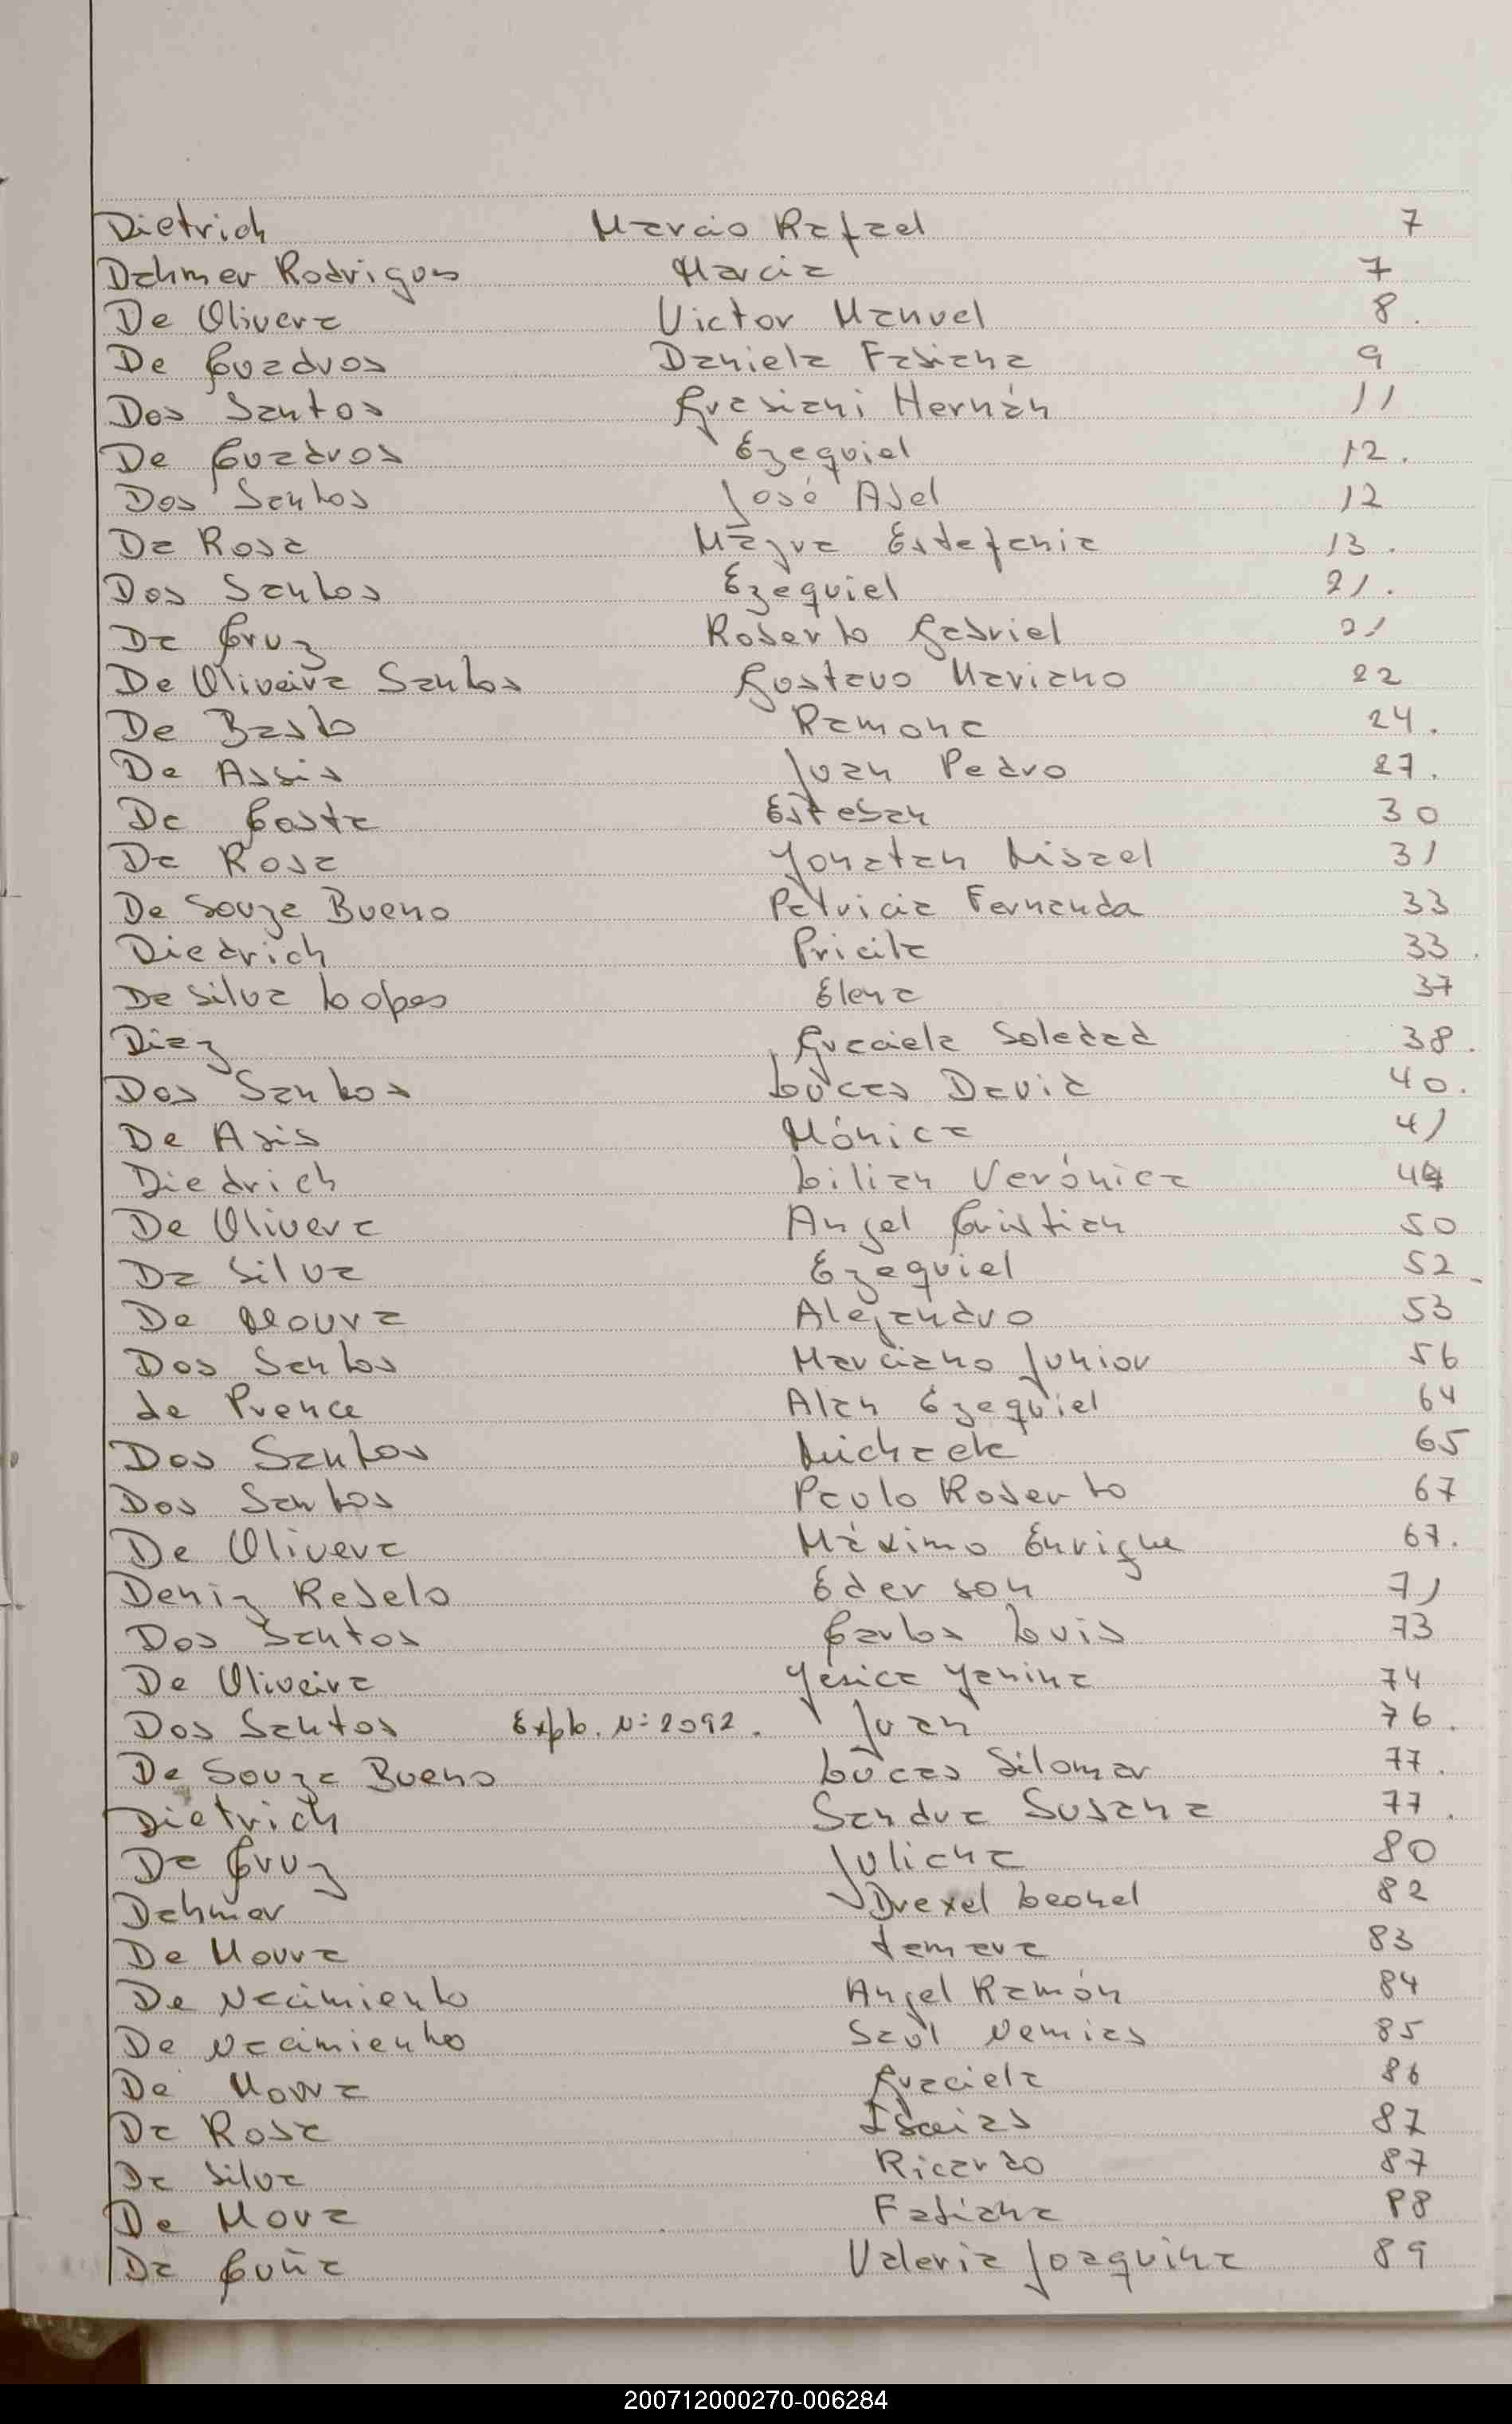 Dietrich Marcio Rafael 7
Dahmer Rodrigues Marcia 7
De Olivera Victor Manuel 8.
De Cuadros Daniela Fabiana 9
Dos Santos Grasiani Hernán 11
De Cuadros Ezequiel 12.
Dos Santos José Abel 12
Da Rosa Mayra Estefania 13.
Dos Santos Ezequiel 21.
Da Cruz Roberto Gabriel 21
De Oliveira Santos Gustavo Mariano 22
De Basto Ramona 24.
De Assis Juan Pedro 27.
Da Costa Esteban 30
Da Rosa Yonatan Misael 31
De Souza Bueno Patricia Fernanda 33
Diedrich Pricila 33.
Da Silva Lopes Elena 37
Diaz Graciela Soledad 38.
Dos Santos Lucas David 40.
De Asis Mónica 41
Diedrich Lilian Verónica 44
De Olivera Angel Cristian 50
Da Silva Ezequiel 52.
De Moura Alejandro 53
Dos Santos Marciano Junior 56
de Prence Alan Ezequiel 64
Dos Santos Michaela 65
Dos Santos Paulo Roberto 67
De Olivera Máximo Enrique 67.
Deniz Rebelo Ederson 71
Dos Santos Carlos Luis 73
De Oliveira Yesica Yanina 74
Dos Santos Expte. Nº 2092. Juan 76.
De Souza Bueno Lucas Silomar 77.
Dietrich Sandra Susana 77.
Da Cruz Juliana 80
Dahmer Drexel Leonel 82
De Moura tamara 83
De Nacimiento Angel Ramón 84
De Nacimiento Saúl Nemias 85
De Moura Graciela 86
Da Rosa Isaias 87
Da Silva Ricardo 87
De Mora Fabiana 88
Da Cuña Valeria Joaquina 89
200712000270-006284